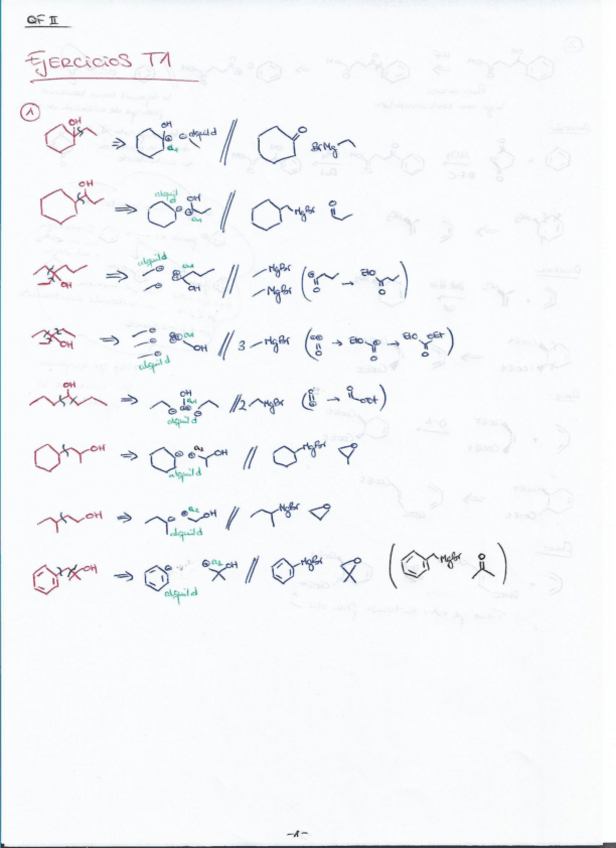 QF II
EJERCICIOS T1
1
OH ⇒ OH a1 alquil d // O BrMg
OH ⇒ alquil d OH a1 // MgBr O
OH ⇒ alquil d a1 OH // MgBr MgBr ( O → EtO O )
OH ⇒ alquil d a1 OH // 3 MgBr ( O → EtO O → EtO OEt O )
OH ⇒ OH a1 alquil d // 2 MgBr ( O → O OEt )
OH ⇒ a2 OH alquil d // MgBr O
OH ⇒ a2 OH alquil d // MgBr O
OH ⇒ a2 OH alquil d // MgBr O ( MgBr O )
-1-